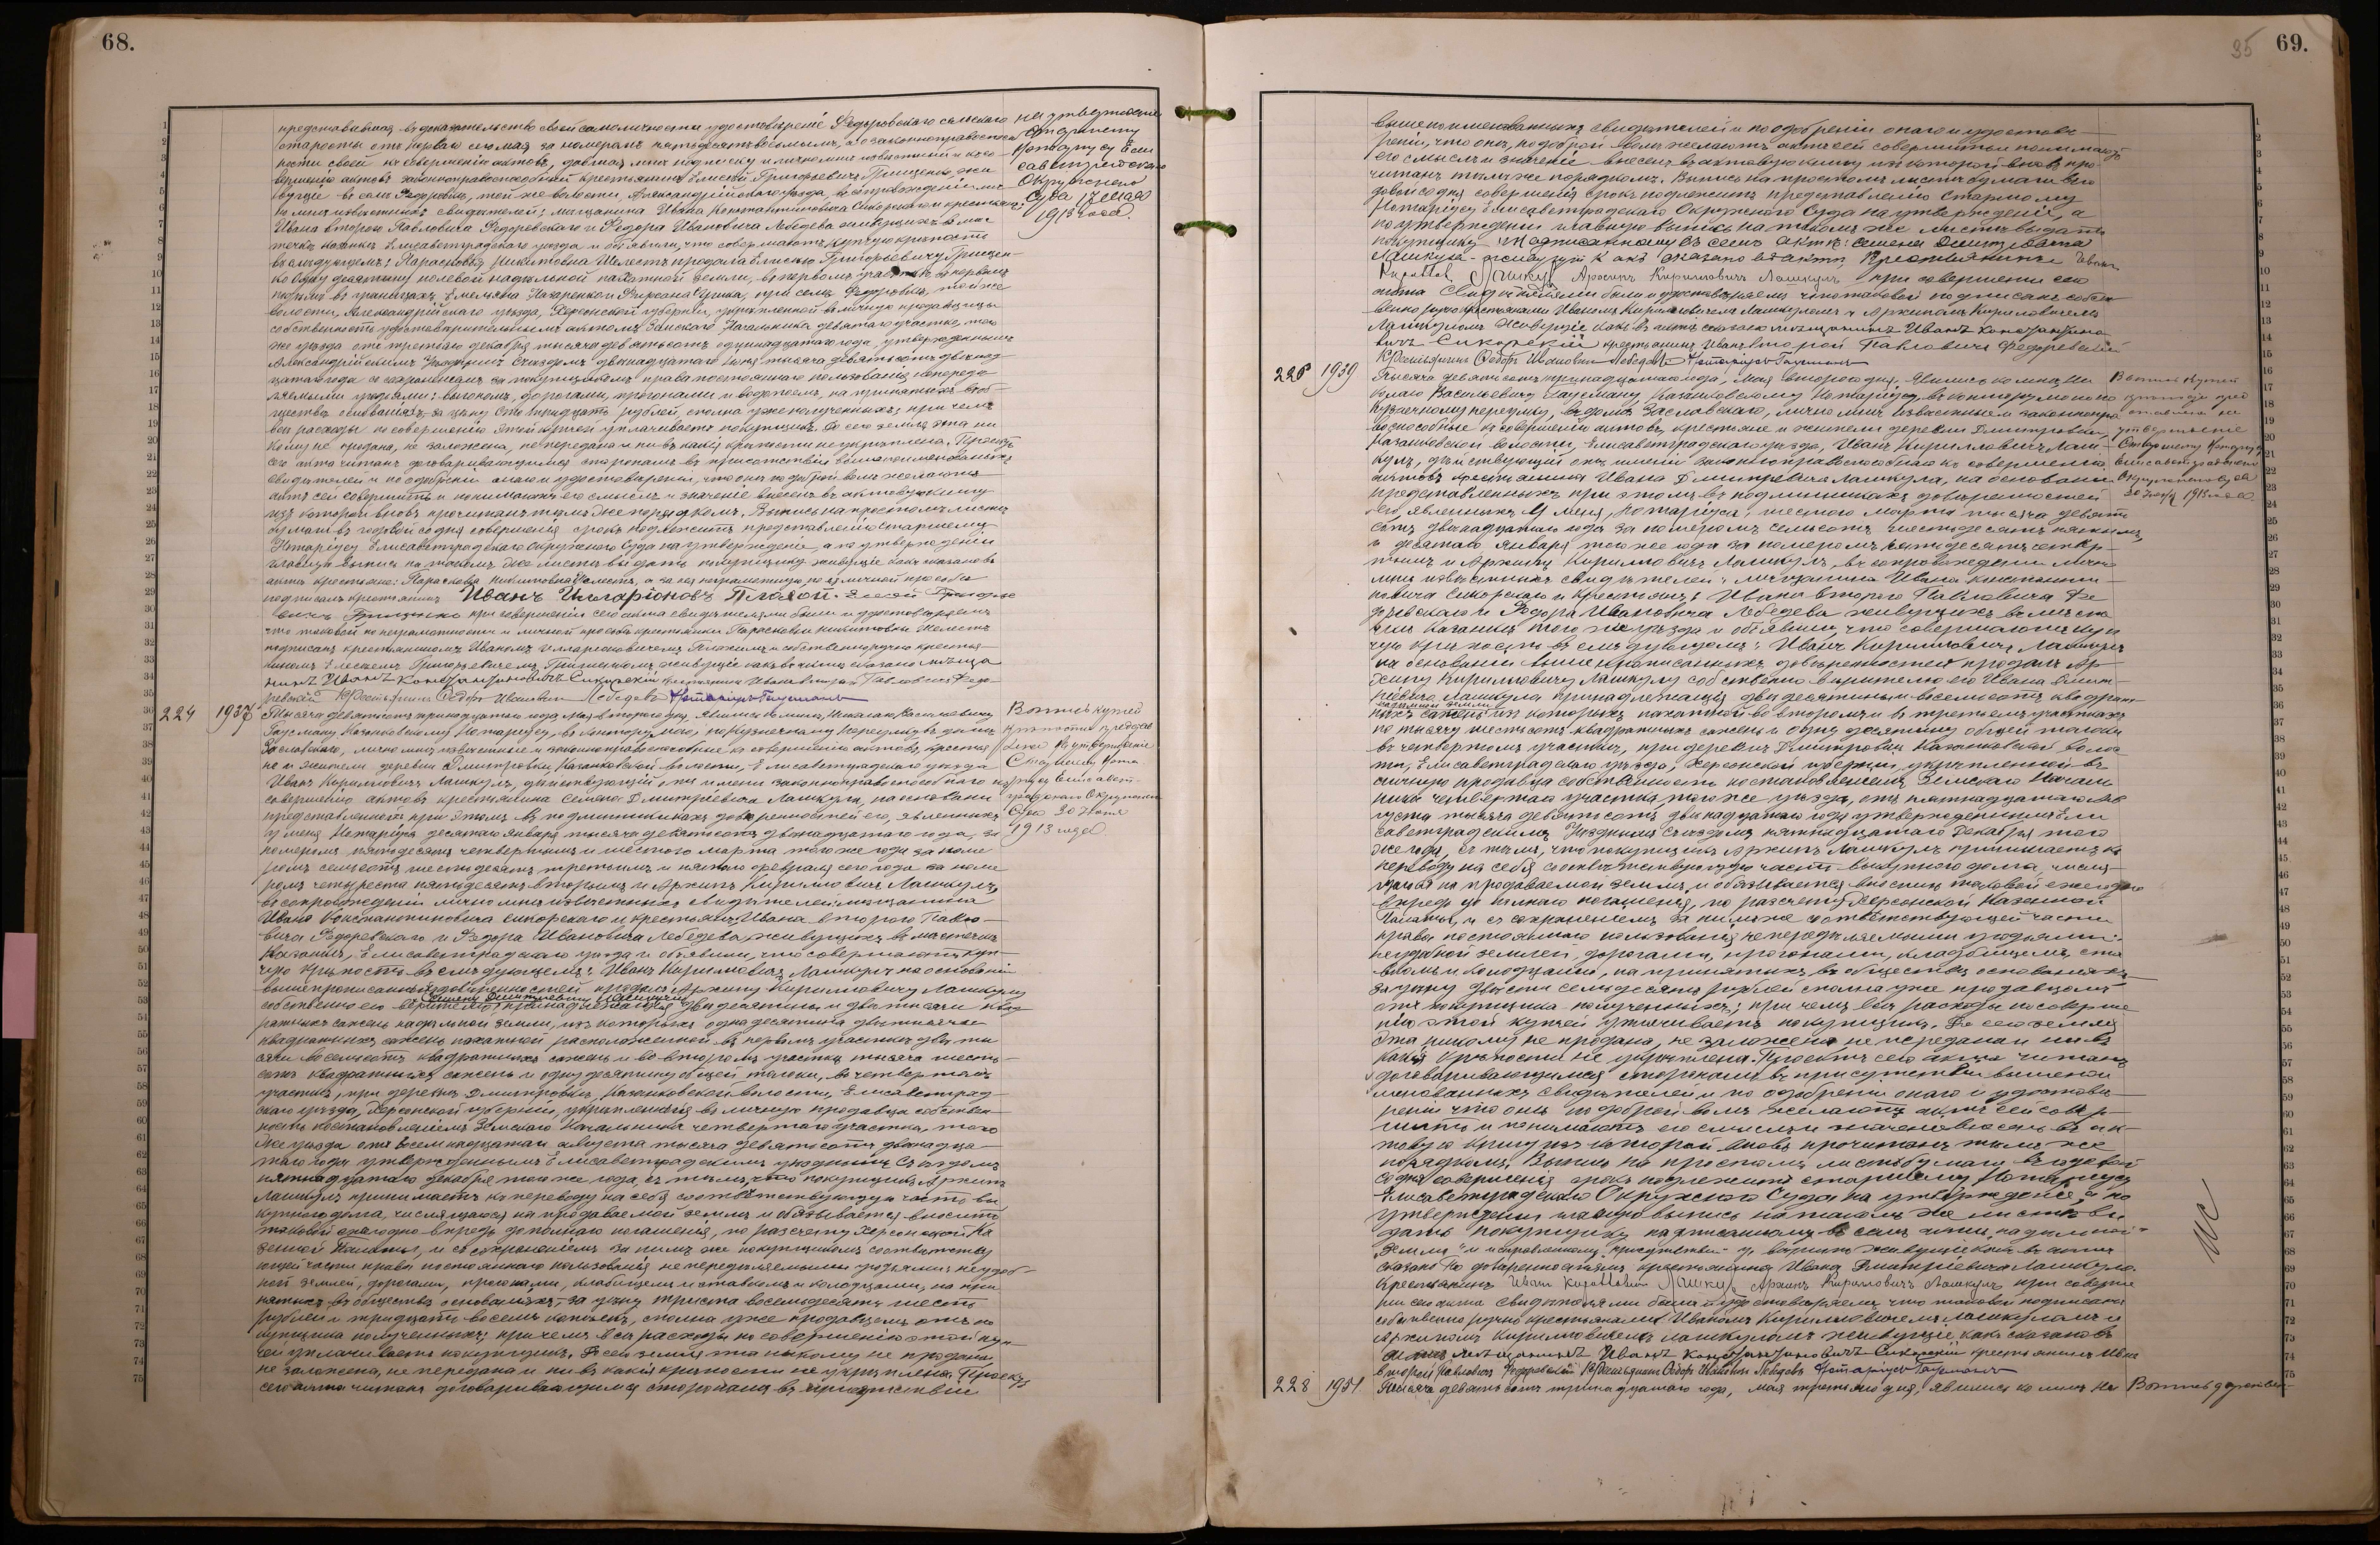 68.
представившая въ доказательство своей самоличности удостовѣреніе Федоровскаго сельскаго
старосты отъ перваго сего мая за номеромъ
ности своей къ совершенію актовъ, давшая мнѣ подписку и лично мнѣ извѣстный и къ со-
вершенію актовъ законноправоспособный крестьянинъ Елисей Григорьевичъ Грищенко, жи
вущіе въ селѣ Федоровкѣ, той же волости, Александрійскаго уѣзда, въ сопровожденіи лич
но мнѣ извѣстныхъ свидѣтелей: мѣщанина Ивана Константиновича Сикорскаго и крестьянъ:
Ивана второго Павловича Федоревскаго и Федора Ивановича Лебедева живущихъ въ мѣс-
течкѣ Казанкѣ Елисаветградскаго уѣзда и объявили, что совершаютъ купчую крѣпость
въ слѣдующемъ: Парасковья Никитовна Шелестъ продала Елисею Григорьевичу Грищен-
ко одну десятину полевой надѣльной пахатной земли, въ первомъ участкѣ въ первомъ
при селѣ Федоровкѣ, той же
волости, Александрійскаго уѣзда, Херсонской губерніи, укрѣпленной въ личную продавщицы
собственность удостовѣрительнымъ актомъ Земскаго Начальника девятаго участка, того
же уѣзда отъ третьяго декабря тысяча девятьсотъ одиннадцатаго года, утвержденнымъ
Александрійскимъ Уѣзднымъ Съѣздомъ двѣнадцатаго тысяча девятьсотъ двѣнад-
цатаго года съ сохраненіемъ за покупщикомъ права постояннаго пользованія непередѣ
ляемыми угодьями: выгономъ, дорогами, прогонами и водопоемъ, на принятыхъ въ об-
ществѣ основаніяхъ, за цѣну сто тридцать рублей, сполна уже полученныхъ; при чемъ
всѣ расходы по совершенію этой купчей уплачиваетъ покупщикъ. До сего земля эта ни
кому не продана, не заложена, не передана и ни въ какія крѣпости не укрѣплена. Проектъ
сего акта читанъ договаривающимся сторонамъ въ присутствіи вышепоименованныхъ
свидѣтелей и по одобреніи онаго и удостовѣреніи, что они по доброй волѣ желаютъ
актъ сей совершить и понимаютъ его смыслъ и значеніе внесенъ въ актовую книгу
изъ которой вновь прочитанъ тѣмъ же порядкомъ. Выпись на простомъ листѣ
бумаги въ годовой со дня совершенія срокъ подлежитъ представленію Старшему
Нотаріусу Елисаветградскаго Окружнаго Суда на утвержденіе, а по утвержденіи
главная выпись на такомъ же листѣ выдать покупщику. живущіе какъ сказано въ
актѣ крестьяне: Параскева Никитовна Шелестъ, а за нея неграмотную по ея личной просьбѣ
подписалъ крестьянинъ Иванъ Иларіоновъ Плахой. Елисей Григорье
вичъ Грищенко при совершеніи сего акта свидѣтелями были и удостовѣряемъ
что таковой по неграмотности и личной просьбѣ крестьянки Парасковьи Никитовны Шелестъ
подписанъ крестьяниномъ Иваномъ Илларіоновичемъ Плахимъ и собственноручно крестья-
ниномъ Елисеемъ Григорьевичемъ Грищенкомъ, живущіе какъ въ актѣ сказано мѣща
нинъ Иванъ Константиновичъ Сикорскій крестьянинъ Иванъ второй Павловичъ Федо
ревскій Крестьянинъ Федоръ Ивановичъ Лебедевъ Нотаріусъ Гаусманъ
на утвержденіе
Старшему
Нотаріусу Ели
саветградскаго
Окружнаго
Суда
1913 года.
224 1937 Тысяча девятьсотъ тринадцатаго года, Мая второго дня, явились ко мнѣ, Николаю Васильевичу
Гаусману Казанковскому Нотаріусу, въ контору мою, по Кузнечному переулку въ домѣ
Заславскаго, лично мнѣ извѣстные и законноправоспособные къ совершенію актовъ, крестья
не и жители деревни Дмитровки, Казанковской волости, Елисаветградскаго уѣзда
Иванъ Кирилловичъ Лашкулъ, дѣйствующій отъ имени законноправоспособнаго къ
совершенію актовъ крестьянина Семена Дмитріевича Лашкула, на основаніи
представленныхъ при этомъ въ подлинникахъ довѣренностей его, явленныхъ
у меня Нотаріуса десятаго Января тысяча девятьсотъ двѣнадцатаго года, за
номеромъ пятьдесятъ четвертымъ и шестого марта того же года за номе
ромъ семьсотъ шестьдесятъ третьимъ и пятаго февраля сего года за номе
ромъ четыреста пятьдесятъ вторымъ и Архипъ Кирилловичъ Лашкулъ,
въ сопровожденіи лично мнѣ извѣстныхъ свидѣтелей: мѣщанина
Ивана Константиновича Сикорскаго и крестьянъ: Ивана второго Павло-
вича Федоревскаго и Федора Ивановича Лебедева, живущихъ въ мѣстечкѣ
Казанкѣ, Елисаветградскаго уѣзда и объявили, что совершаютъ куп
чую крѣпость въ слѣдующемъ: Иванъ Кирилловичъ Лашкулъ на основаніи
вышепрописанныхъ довѣренностей продалъ Архипу Кирилловичу Лашкулу
собственно его вѣрителю Семену Дмитріевичу Лашкулу принадлежащія двѣ десятины и двѣ тысячи квад
ратныхъ сажень надѣльной земли, изъ которыхъ одна десятина двѣ тысячи
квадратныхъ сажень пахатной расположенной въ первомъ участкѣ двѣ ты
сячи восемьсотъ квадратныхъ сажень и во второмъ участкѣ тысяча шесть-
сотъ квадратныхъ сажень и одну десятину общей толоки, въ четвертомъ
участкѣ, при деревнѣ Дмитровкѣ, Казанковской волости, Елисаветград-
скаго уѣзда, Херсонской губерніи, укрѣпленныя въ личную продавца собствен-
ность постановленіемъ Земскаго Начальника четвертаго участка, того
же уѣзда отъ восемнадцатаго августа тысяча девятьсотъ двѣнадца-
таго года утвержденнымъ Елисаветградскимъ уѣзднымъ Съѣздомъ
пятнадцатаго декабря того же года, съ тѣмъ, что покупщикъ Архипъ
Лашкулъ принимаетъ къ переводу на себя соотвѣтствующую часть вы
купного долга, числящагося на продаваемой землѣ и обязывается вносить
таковой ежегодно впредь до полнаго погашенія, по разсчету Херсонской Ка
зенной Палаты, и съ сохраненіемъ за нимъ же покупщикомъ соотвѣтству
ющей части права постояннаго пользованія непередѣляемыми угодьями: неудоб-
ной землей, дорогами, прогонами, кладбищемъ и ставкомъ и колодцами, на при
нятыхъ въ обществѣ основаніяхъ, за цѣну триста восемьдесятъ шесть
рублей и тридцать восемь копѣекъ, сполна уже продавцемъ отъ по
купщика полученныхъ; при чемъ всѣ расходы по совершенію этой куп-
чей уплачиваетъ покупщикъ. До сего земля эта никому не продана,
не заложена, не передана и ни въ какія крѣпости не укрѣплена. Проектъ
сего акта читанъ договаривающимся сторонамъ въ присутствіи
Выпись купчей
крѣпости представ
лена на утвержденіе
Старшему Нота
ріусу Елисавет-
градскаго Окружнаго
Суда 20 Іюня
1913 года
35 69.
вышепоименованныхъ свидѣтелей и по одобреніи онаго и удостовѣ-
реніи, что они, по доброй волѣ желаютъ актъ сей совершить и понимаютъ
его смыслъ и значеніе внесенъ въ актовую книгу изъ которой вновь про-
читанъ тѣмъ же порядкомъ. Выпись на простомъ листѣ бумаги въ го
довой со дня совершенія срокъ подлежитъ представленію Старшему
Нотаріусу Елисаветградскаго Окружнаго Суда на утвержденіе, а
по утвержденіи главную выпись на такомъ же листѣ выдать
покупщику. Надписанному въ семъ актѣ: Семену Дмитріевичу
Лашкулу живущій какъ сказано въ актѣ Крестьянинъ Иванъ
Кириллов Лашкул Архипъ Кирилловичъ Лашкулъ при совершеніи сего
акта свидѣтелями были и удостовѣряемъ что таковой подписанъ собст
венно ручно крестьянами Иваномъ Кирилловичемъ Лашкуломъ и Архипомъ Кирилловичемъ
Лашкуломъ живущіе какъ въ актѣ сказано мѣщанинъ Иванъ Константино
вичъ Сикорскій крестьянинъ Иванъ второй Павловичъ Федоревскій
Крестьянинъ Федоръ Ивановичъ Лебедевъ Нотаріусъ Гаусманъ
226 1939 Тысяча девятьсотъ тринадцатаго года, Мая второго дня, явились ко мнѣ, Ни
колаю Васильевичу Гаусману, Казанковскому Нотаріусу, въ контору мою по
Кузнечному переулку, въ домѣ Заславскаго, лично мнѣ извѣстные и законнопра
воспособные къ совершенію актовъ, крестьяне и жители деревни Дмитровки,
Казанковской волости, Елисаветградскаго уѣзда, Иванъ Кирилловичъ Лаш-
кулъ, дѣйствующій отъ имени законноправоспособнаго къ совершенію
актовъ крестьянина Ивана Дмитріевича Лашкула, на основаніи
представленныхъ при этомъ въ подлинникахъ довѣренностей
его, явленныхъ у меня, Нотаріуса, шестого марта тысяча девять
сотъ двѣнадцатаго года за номеромъ семьсотъ шестьдесятъ
и десятаго января того же года за номеромъ пятьдесятъ четвер-
тымъ и Архипъ Кирилловичъ Лашкулъ, въ сопровожденіи лично
мнѣ извѣстныхъ свидѣтелей: мѣщанина Ивана Константи-
новича Сикорскаго и крестьянъ: Ивана второго Павловича Фе
доревскаго и Федора Ивановича Лебедева живущихъ въ мѣстеч
кѣ Казанкѣ того же уѣзда и объявили, что совершаютъ куп
чую крѣпость въ слѣдующемъ: Иванъ Кирилловичъ Лашкулъ
на основаніи вышепрописанныхъ довѣренностей продалъ Ар-
хипу Кирилловичу Лашкулу собственно вѣрителю его Ивана Дмит-
ріевича Лашкула принадлежащія двѣ десятины восемьсотъ квадрат-
ныхъ сажень надѣльной земли изъ которыхъ пахатной во второмъ и въ третьемъ участкахъ
по тысячу шестьсотъ квадратныхъ сажень и одну десятину общей толоки
въ четвертомъ участкѣ, при деревнѣ Дмитровкѣ Казанковской волос
ти, Елисаветградскаго уѣзда, Херсонской губерніи, укрѣпленной въ
личную продавца собственность постановленіемъ Земскаго Началь
ника четвертаго участка, того же уѣзда, отъ пятнадцатаго Ав
густа тысяча девятьсотъ двѣнадцатаго года утвержденнымъ Ели
саветградскимъ Уѣзднымъ Съѣздомъ пятнадцатаго Декабря того
же года, съ тѣмъ, что покупщикъ Архипъ Лашкулъ принимаетъ къ
переводу на себя соотвѣтствующую часть выкупного долга, числя
щагося на продаваемой землѣ, и обязывается вносить таковой ежегодно
впредь до полнаго погашенія, по разсчету Херсонской Казенной
Палаты, и съ сохраненіемъ за нимъ же соотвѣтствующей части
права постояннаго пользованія непередѣляемыми угодьями:
неудобной землей, дорогами, прогонами, кладбищемъ, ста
вкомъ и колодцами, на принятыхъ въ обществѣ основаніяхъ
за цѣну двѣсти семьдесятъ рублей сполна уже продавцомъ
отъ покупщика полученныхъ; при чемъ всѣ расходы по соверше
нію этой купчей уплачиваетъ покупщикъ. До сего земля
эта никому не продана, не заложена, не передана и ни въ
какія крѣпости не укрѣплена. Проектъ сего акта читанъ
договаривающимся сторонамъ въ присутствіи вышепои
менованныхъ свидѣтелей и по одобреніи онаго и удостовѣ
реніи что они по доброй волѣ желаютъ актъ сей совер-
шить и понимаютъ его смыслъ и значеніе внесенъ въ ак-
товую книгу изъ которой вновь прочитанъ тѣмъ же
порядкомъ. Выпись на простомъ листѣ бумаги въ годовой
со дня совершенія срокъ подлежитъ старшему Нотаріусу
Елисаветградскаго Окружного Суда на утвержденіе, а по
утвержденіи главную выпись на такомъ же листѣ вы
дать покупщику надписанному въ семъ актѣ „надѣльной
земли“ и исправленному „присутствіи“ вѣрить живущіе какъ въ актѣ
сказано по довѣренностямъ крестьянина Ивана Дмитріевича Лашкула.
Крестьянинъ Иванъ Кириллович Лашкулъ Архипъ Кирилловичъ Лашкулъ при соверше
ніи сего акта свидѣтелями были и удостовѣряемъ что таковой подписанъ
собственно ручно крестьянами Иваномъ Кирилловичемъ Лашкуломъ и
Архипомъ Кирилловичемъ Лашкуломъ живущіе какъ сказано въ
актѣ мѣщанинъ Иванъ Константиновичъ Сикорскій крестьянинъ Иванъ
второй Павловичъ Федоревскій Крестьянинъ Федоръ Ивановичъ Лебедевъ Нотаріусъ Гаусманъ
Выпись купчей
крѣпости пред
ставлена на
утвержденіе
Старшему Нотаріусу
Елисаветградскаго
Окружнаго Суда
20 Іюня 1913 года
228 1951 Тысяча девятьсотъ тринадцатаго года, мая третьяго дня, явились ко мнѣ Ни Выпись дарствен-